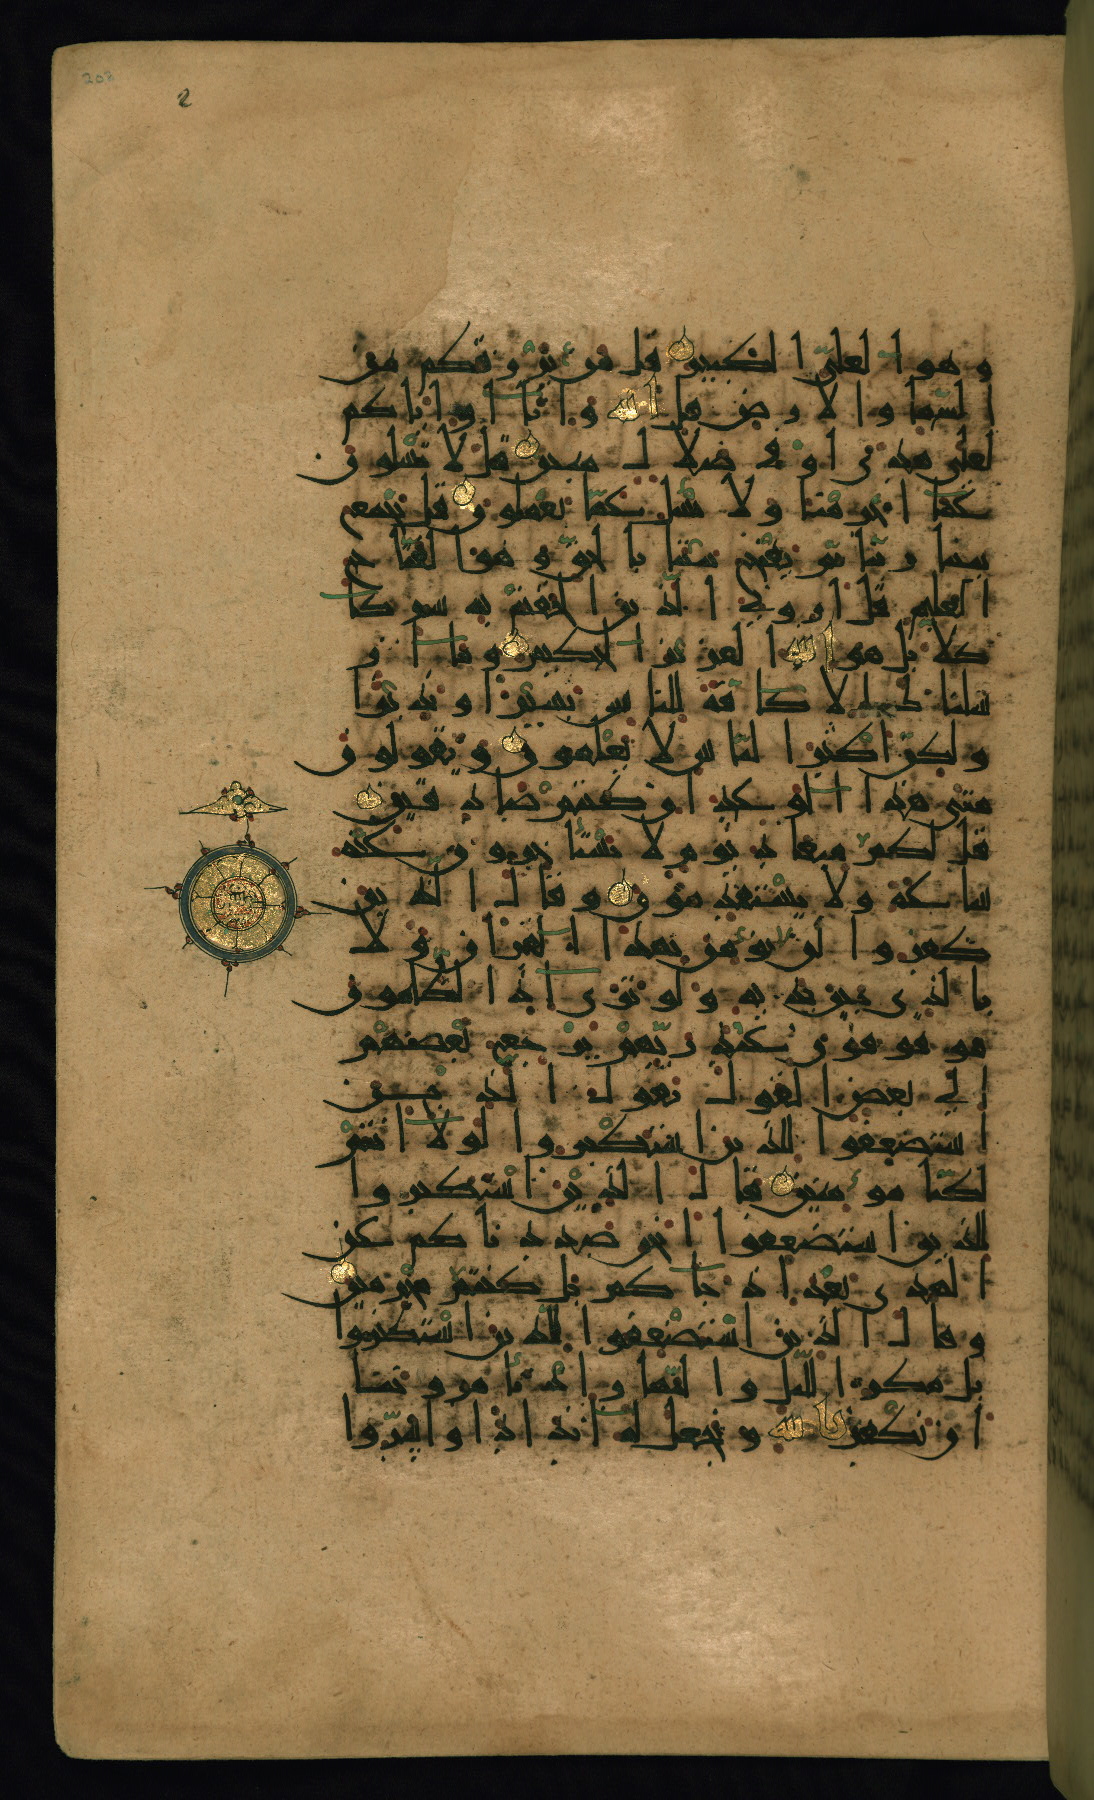 208
2
وهو العلي الكبير قل من يرزقكم من
السموات والارض قل الله وانا او اياكم
لعلى هدى او في ضلال مبين قل لا تسئلون
عما اجرمنا ولا نسئل عما تعملون قل يجمع
بيننا ربنا ثم يفتح بيننا بالحق وهو الفتاح
العليم قل اروني الذين الحقتم به شركا
كلا بل هو الله العزيز الحكيم وما ار
سلناك الا كافة للناس بشيرا ونذيرا
ولكن اكثر الناس لا يعلمون ويقولون
متى هذا الوعد ان كنتم صادقين
قل لكم ميعاد يوم لا تستاخرون عنه
ساعة ولا تستقدمون وقال الذين
كفروا لن نومن بهذا القران ولا
بالذي بين يديه ولو ترى اذ الظالمون
موقوفون عند ربهم يرجع بعضهم
الى بعض القول يقول الذين
استضعفوا للذين استكبروا لولا انتم
لكنا مومنين قال الذين استكبروا
للذين استضعفوا انحن صددناكم عن
الهدى بعد اذ جاكم بل كنتم مجرمين
وقال الذين استضعفوا للذين استكبروا
بل مكر الليل والنهار اذ تامروننا
ان نكفر بالله ونجعل له اندادا واسروا